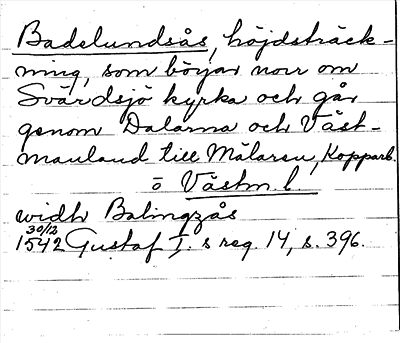 Badelundsås, höjdsträck-
ning, som börjar norr om
Svärdsjö kyrka och går
genom Dalarna och Väst-
manland till Mälaren, Kopparb.
o Västm. l.
widh Balingzås
30/12
1542 Gustaf I. s reg. 14, s. 396.